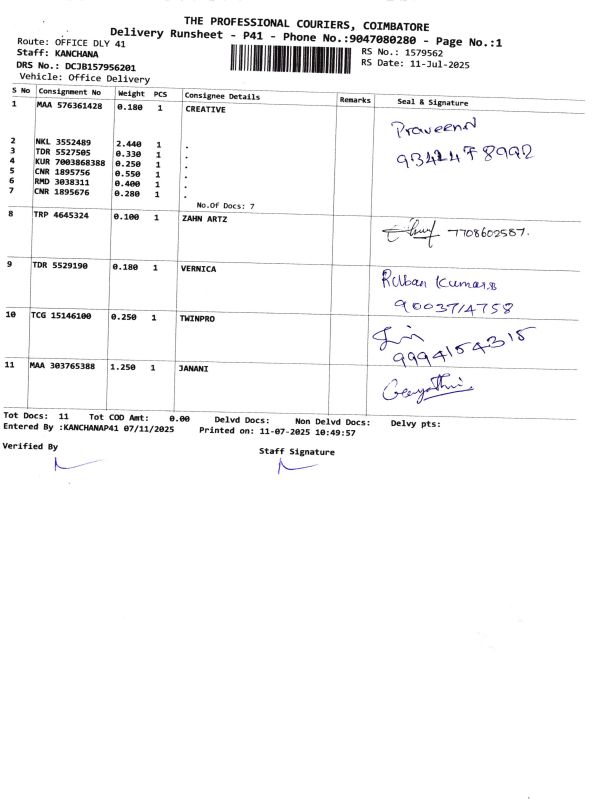 THE PROFESSIONAL COURIERS, COIMBATORE
Delivery Runsheet - P41 - Phone No.:9047080280 - Page No.:1
Route: OFFICE DLY 41
Staff: KANCHANA
DRS No.: DCJB157956201
Vehicle: Office Delivery
RS No.: 1579562
RS Date: 11-Jul-2025
S No Consignment No Weight PCS Consignee Details Remarks Seal & Signature
1 MAA 576361428 0.180 1 CREATIVE
Praveen
2 NKL 3552489 2.440 1 .
3 TDR 5527505 0.330 1 .
4 KUR 7003868388 0.250 1 .
5 CNR 1895756 0.550 1 .
6 RMD 3038311 0.400 1 .
7 CNR 1895676 0.280 1 .
No.Of Docs: 7
8 TRP 4645324 0.100 1 ZAHN ARTZ
7708602587.
9 TDR 5529190 0.180 1 VERNICA
Ruban Kumar.B
9003714758
10 TCG 15146100 0.250 1 TWINPRO
9994154315
11 MAA 303765388 1.250 1 JANANI
Tot Docs: 11 Tot COD Amt: 0.00 Delvd Docs: Non Delvd Docs: Delvy pts:
Entered By :KANCHANAP41 07/11/2025 Printed on: 11-07-2025 10:49:57
Verified By
Staff Signature